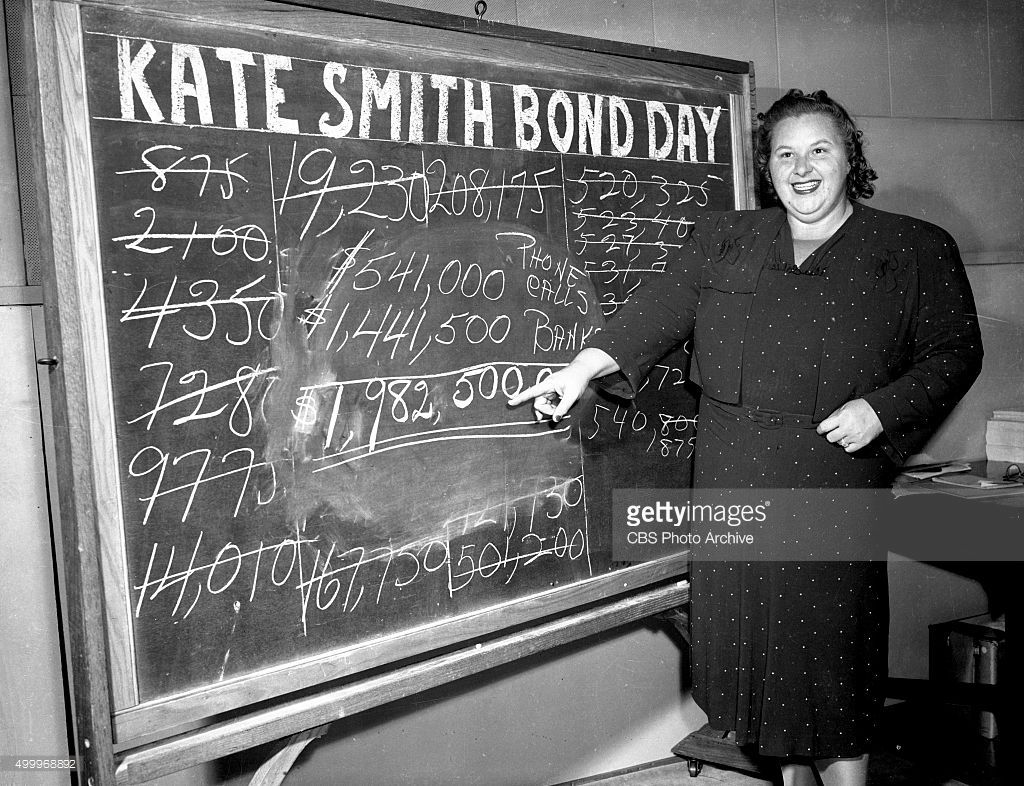 KATE SMITH BOND DAY
875
2100
4350
7287
9775
14,010
19,230
208,175
$541,000 PHONE CALLS
$1,441,500 BANKS
$1,982,500.00
167,750
504,200
520,325
540
800
1875
gettyimages®
CBS Photo Archive
499968892